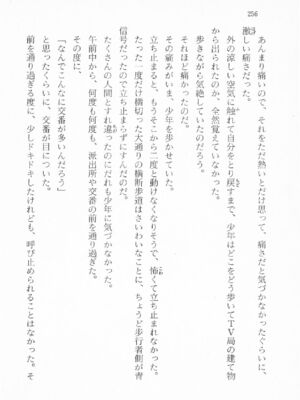 256
あんまり痛いので、それをただ熱いとだけ思って、痛さだと気づかなかったぐらいに、
激しい痛さだった。
外の涼しい空気に触れて自分をとり戻すまで、少年はどこをどう歩いてTV局の建て物
から出られたのか、全然覚えていなかった。
歩きながら気絶していたのだろう。
それほど痛かったのだ。
その痛みが、まだ、少年を歩かせていた。
立ち止まると、もうそこから二度と動けなくなりそうで、怖くて立ち止まれなかった。
たった一度だけ横切った大通りの横断歩道はさいわいなことに、ちょうど歩行者側が青
信号だったので立ち止まらずにすんだのだ。
たくさんの人とすれ違ったのにだれも少年に気づかなかった。
午前中から、何度も何度も、派出所や交番の前を通り過ぎた。
その度に、
「なんでこんなに交番が多いんだろう」
と思ったくらいに、交番が目についた。
前を通り過ぎる度に、少しドキドキしたけれども、呼び止められることはなかった。そ